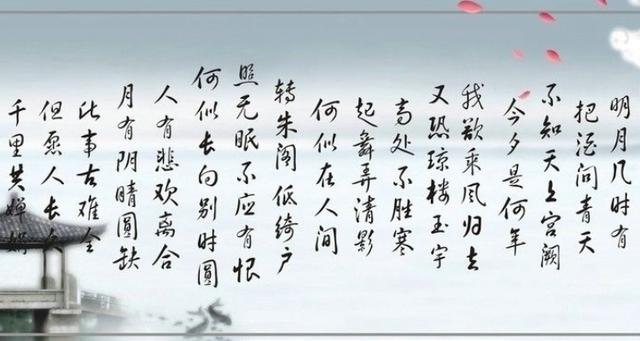 明月几时有
把酒问青天
不知天上宫阙
今夕是何年
我欲乘风归去
又恐琼楼玉宇
高处不胜寒
起舞弄清影
何似在人间
转朱阁低绮户
照无眠不应有恨
何似长向别时圆
人有悲欢离合
月有阴晴圆缺
此事古难全
但愿人长久
千里共婵娟